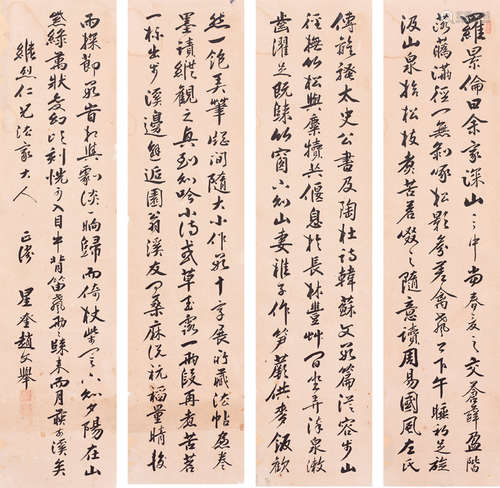 羅景倫曰余家深山之中尚春夏之交蒼蘚盈階
落花滿徑一無剝啄松影參差禽聲上下午睡初足旋
汲山泉拾松枝煮苦茗啜之隨意讀周易國風左氏
傳離騷太史公書及陶杜詩韓蘇文數篇從容步山
徑撫竹松與麋犢共偃息於長林豐草間坐弄流泉漱
齒濯足既歸竹窗下則山妻稚子作筍蕨供麥飯歡
然一飽弄筆窗間隨大小作數十字展所藏法帖卷
墨蹟縱觀之興到則吟小詩或草玉露一兩段再煮苦茗
一杯出步溪邊邂逅園翁溪友問桑麻說秔稻量晴校
雨探節數時相與劇談一晌歸而倚杖柴門下則夕陽在山
紫綠萬狀變幻頃刻恍可入目牛背笛聲兩歸來而月前溪矣
維烈仁兄法家大人 正 星奎趙文舉